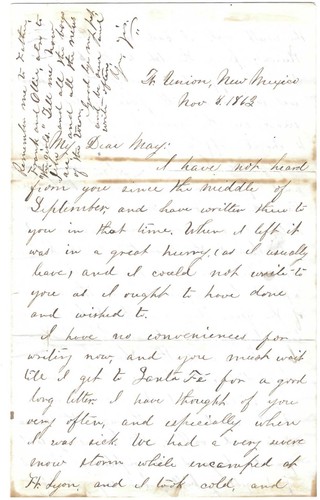 Ft Union, New Mexico
Nov 8. 1862
My Dear May:
I have not heard
from you since the middle of
September, and have written thrice to
you in that time. When I left it
was in a great hurry, (as I usually
leave,) and I could not write to
you as I ought to have done
and wished to.
I have no conveniences for
writing now, and you must wait
till I get to Santa Fé for a good
long letter. I have thought of you
very often, and especially when
I was sick. We had a very severe
snow storm while encamped at
Ft. Lyon, and I took cold, and
Remember me to Father,
Frank and Ollie, also to
the girls. Tell me how
and all the boys
are and all the news
of the town.
and
write often.